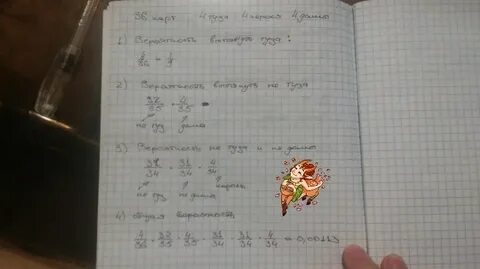 36 карт 4 туза 4 короля 4 дамы
1) Вероятность вытянуть туза:
4/36 = 1/9
2) Вероятность вытянуть не туза
32/35 · 4/35
не туз дама
3) Вероятность не туза и не дамы
32/34 · 31/34 · 4/34
не туз не дама король
4) общая вероятность
4/36 · 32/35 · 4/35 · 32/34 · 31/34 · 4/34 = 0,00113